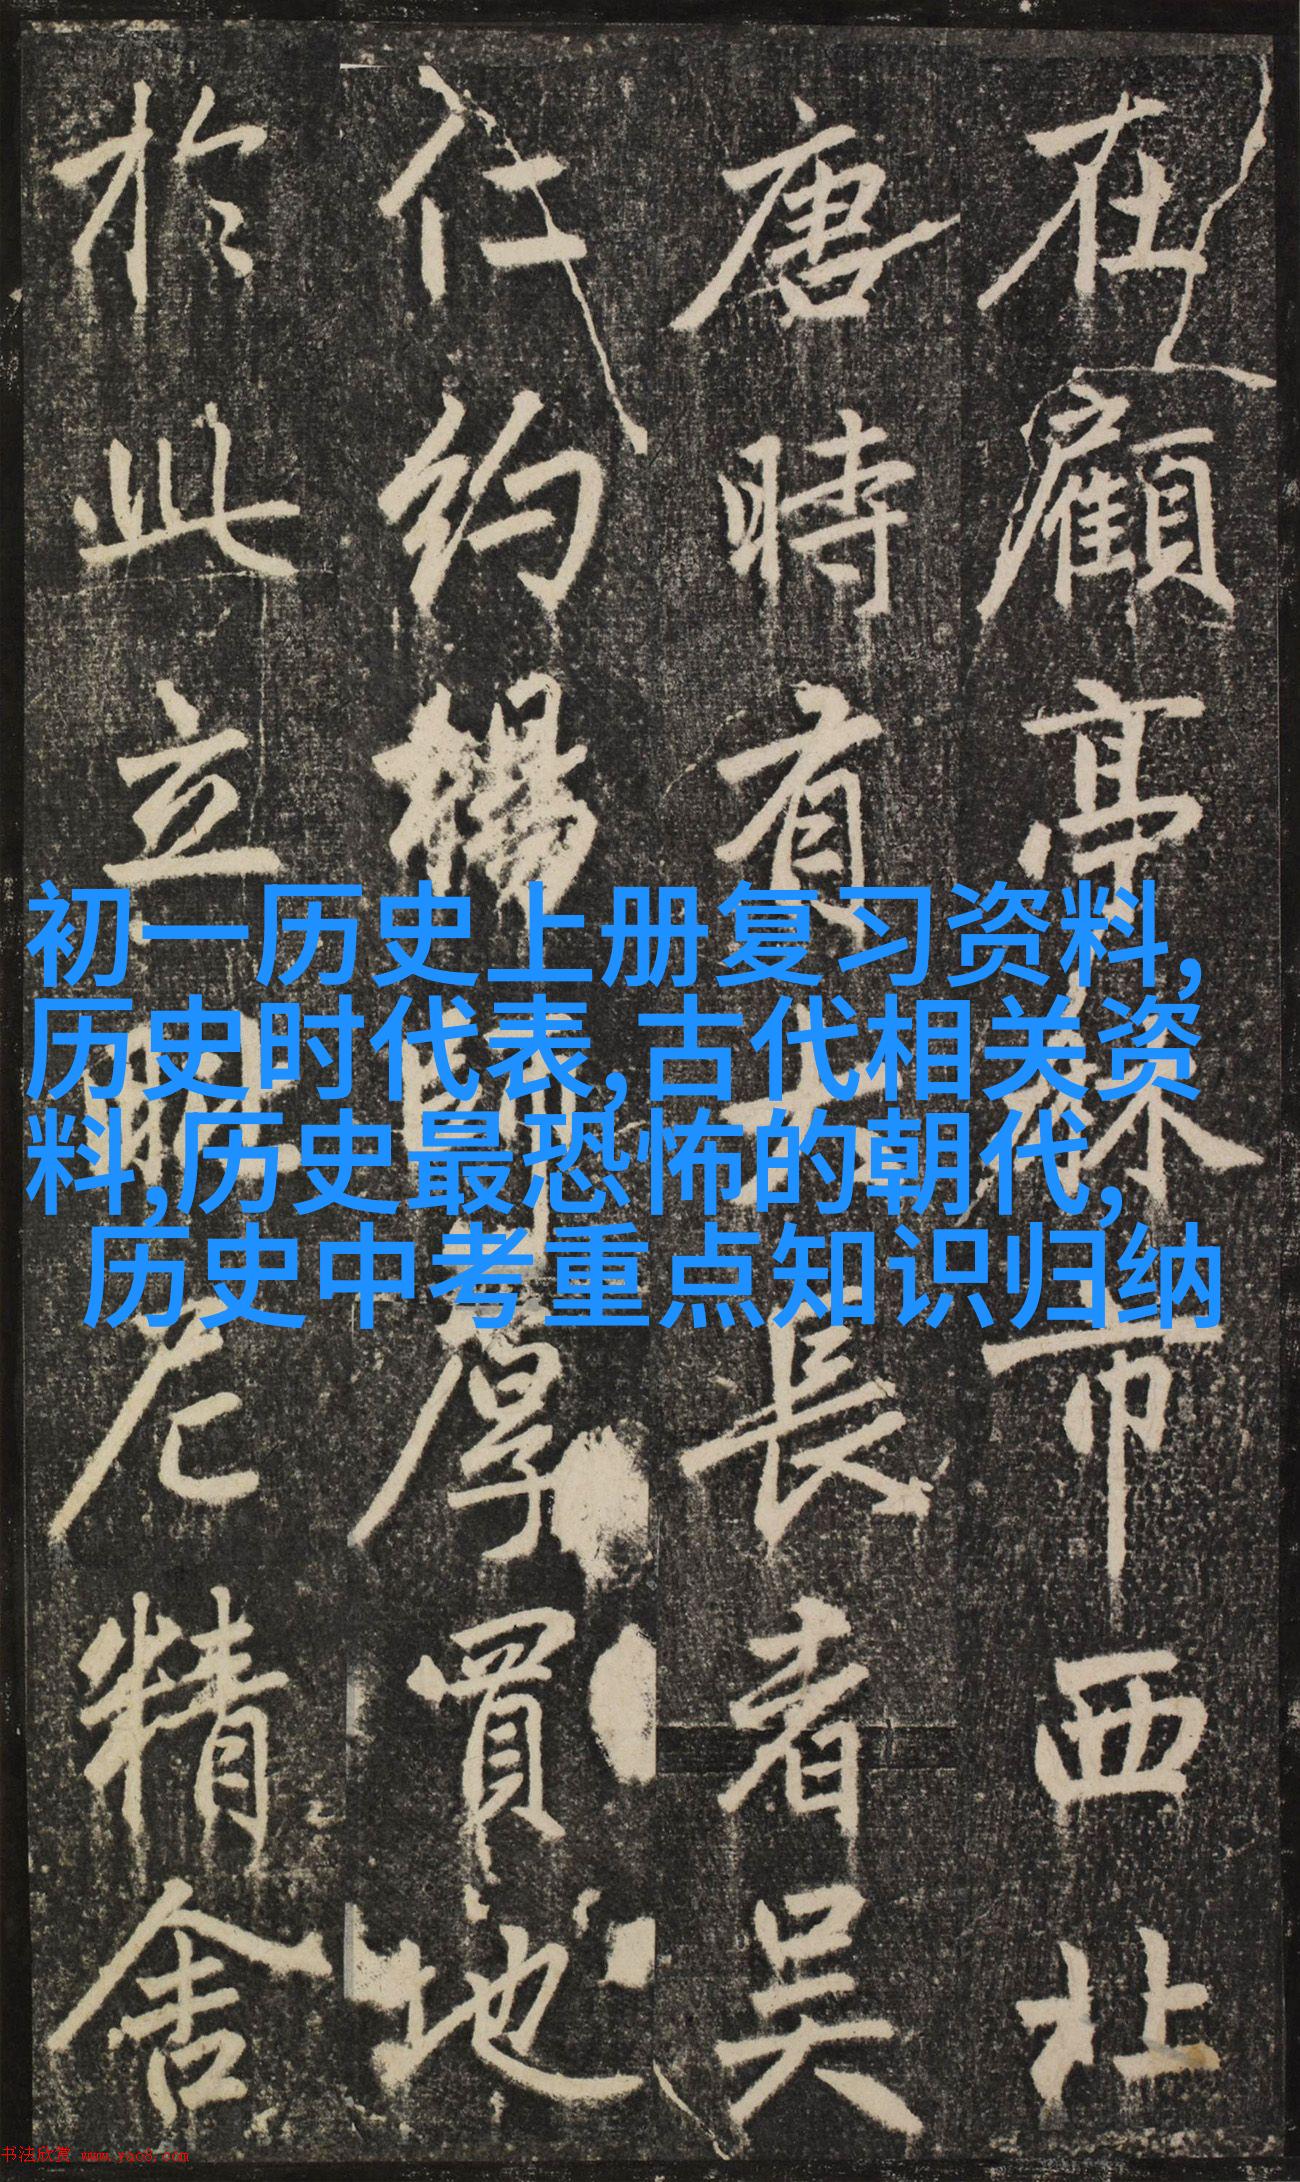 在顧亭林市西北
唐時有大長者吳
仁約楊師厚買地
於此立毗尼精舍
初一历史上册复习资料,
历史时代表,古代相关资
料,历史最恐怖的朝代,
历史中考重点知识归纳
书法欣赏 www.yac8.com